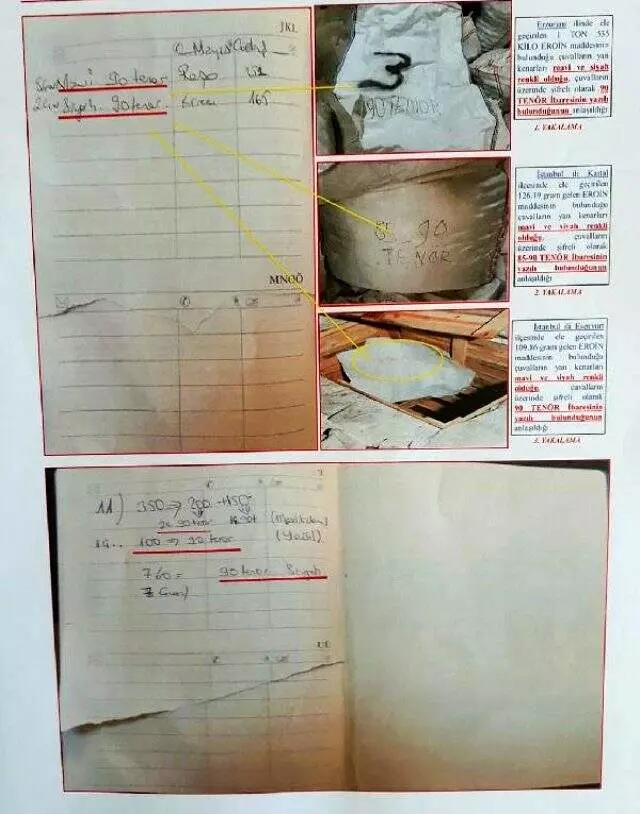 JKL
90 tenor
90 tenor 165
MNOÖ
3
90 TENÖR
90
TENÖR
Erzurum ilinde ele
geçirilen 1 TON 535
KİLO EROİN maddesinin
bulunduğu çuvalların yan
kenarları mavi ve siyah
renkli olduğu, çuvalların
üzerinde şifreli olarak 90
TENÖR İbaresinin yazılı
bulunduğunun anlaşıldığı
1. YAKALAMA
İstanbul ili Kartal
ilçesinde ele geçirilen
126.19 gram gelen EROİN
maddesinin bulunduğu
çuvalların yan kenarları
mavi ve siyah renkli
olduğu, çuvalların
üzerinde şifreli olarak
85-90 TENÖR İbaresinin
yazılı bulunduğunun
anlaşıldığı
2. YAKALAMA
İstanbul ili Esenyurt
ilçesinde ele geçirilen
109.86 gram gelen EROİN
maddesinin bulunduğu
çuvalların yan kenarları
mavi ve siyah renkli
olduğu, çuvalların
üzerinde şifreli olarak
90 TENÖR İbaresinin
yazılı bulunduğunun
anlaşıldığı
3. YAKALAMA
11) 350 ⇒ 200 +150
90 tenor
100 ⇒ 90 tenor
760 = 90 tenor Siyah